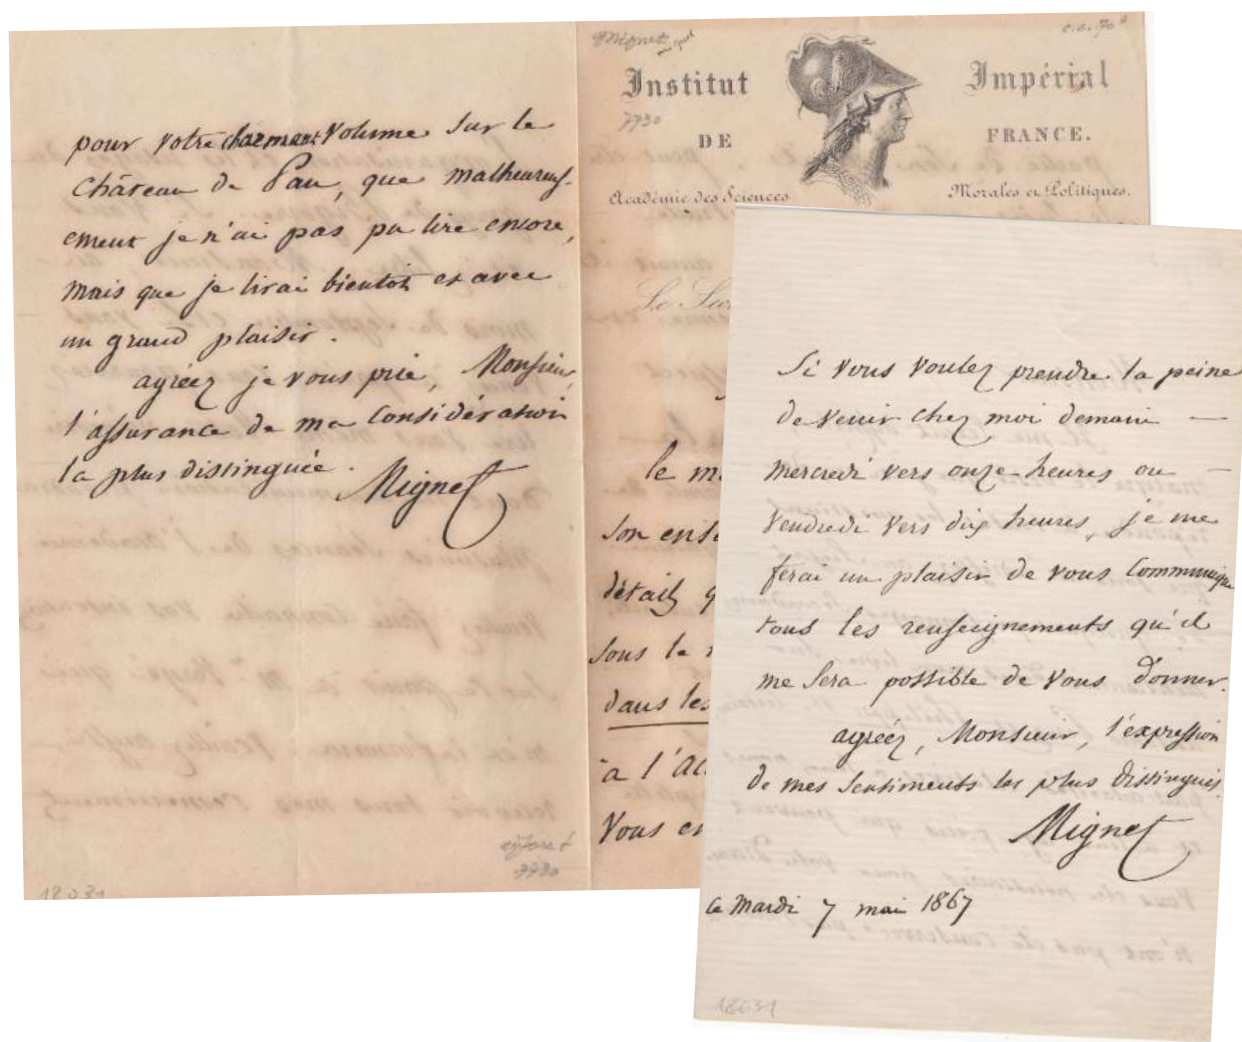 pour votre charmant volume sur le
château de Pau, que malheureus-
ement je n'ai pas pu lire encore,
mais que je lirai bientôt et avec
un grand plaisir.
agréez je vous prie, Monsieur,
l'assurance de ma considération
la plus distinguée.
Mignet
18031
Mignet
Institut Impérial
7730
DE FRANCE.
Académie des Sciences Morales et Politiques.
le m
son ens
détails q
sous le
dans les
à l'Ac
Vous en
7730
Si vous voulez prendre la peine
de venir chez moi demain —
mercredi vers onze heures ou —
vendredi vers dix heures, je me
ferai un plaisir de vous communiquer
tous les renseignements qu'il
me sera possible de vous donner.
agréez, Monsieur, l'expression
de mes sentiments les plus distingués.
Mignet
ce Mardi 7 mai 1867
18031